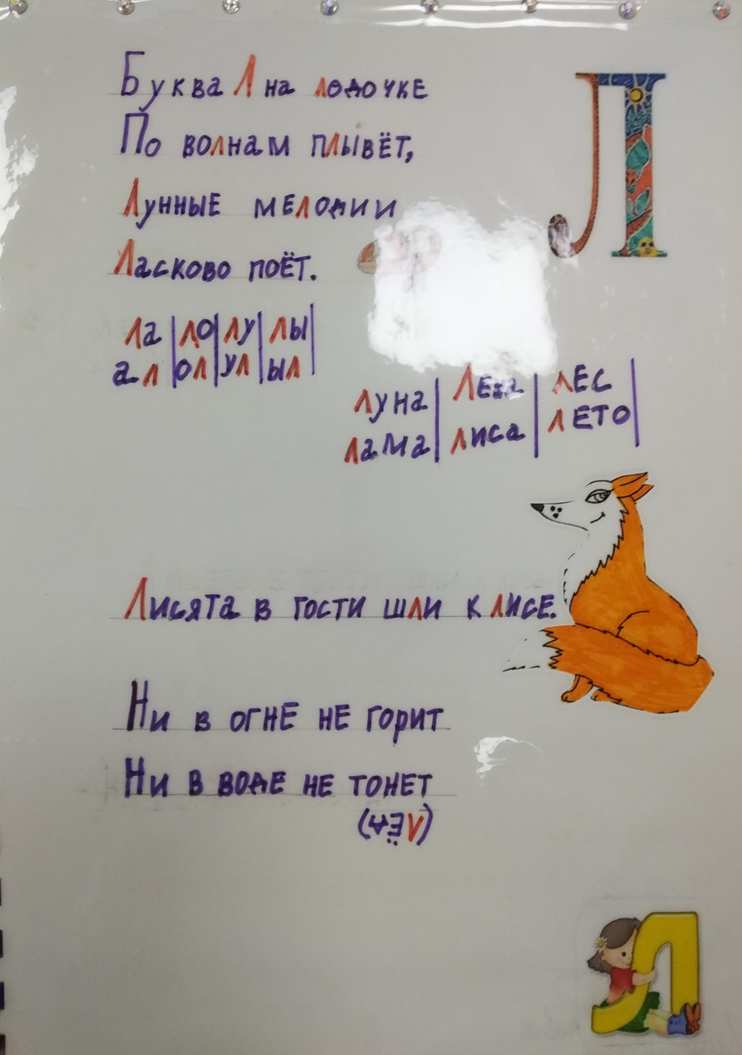 Буква Л на лодочке
По волнам плывёт,
Лунные мелодии
Ласково поёт.
ла | ло | лу | лы |
ал | ол | ул | ыл |
луна | Лена | лес |
лама | лиса | лето |
Лисята в гости шли к лисе.
Ни в огне не горит
Ни в воде не тонет
(лёд)
Л
Л